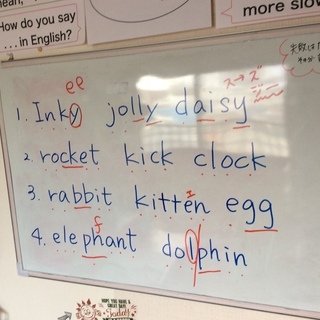 How do you say
... in English?
more slow
ee
ス→ズ
1. Inky jolly daisy
2. rocket kick clock
3. rabbit kitten egg
f
4. elephant dolphin